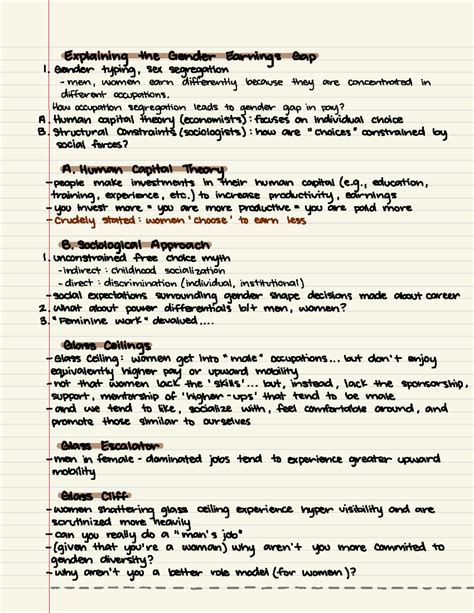 Explaining the Gender Earnings Gap
1. Gender typing, sex segregation
- men, women earn differently because they are concentrated in
different occupations.
How occupation segregation leads to gender gap in pay?
A. Human capital theory (economists): focuses on individual choice
B. Structural Constraints (sociologists): how are "choices" constrained by
social forces?
A. Human Capital Theory
- people make investments in their human capital (e.g., education,
training, experience, etc.) to increase productivity, earnings
- you invest more = you are more productive = you are paid more
- Crudely stated: women 'choose' to earn less
B. Sociological Approach
1. unconstrained free choice myth
- indirect: childhood socialization
- direct: discrimination (individual, institutional)
- social expectations surrounding gender shape decisions made about career
2. What about power differentials b/t men, women?
3. "Feminine work" devalued....
Glass Ceilings
- Glass Ceiling: women get into "male" occupations... but don't enjoy
equivalently higher pay or upward mobility
- not that women lack the 'skills'... but, instead, lack the sponsorship,
support, mentorship of 'higher-ups' that tend to be male
- and we tend to like, socialize with, feel comfortable around, and
promote those similar to ourselves
Glass Escalator
- men in female-dominated jobs tend to experience greater upward
mobility
Glass Cliff
- women shattering glass ceiling experience hyper visibility and are
scrutinized more heavily
- can you really do a "man's job"
- (given that you're a woman) why aren't you more commited to
gender diversity?
- why aren't you a better role model (for women)?